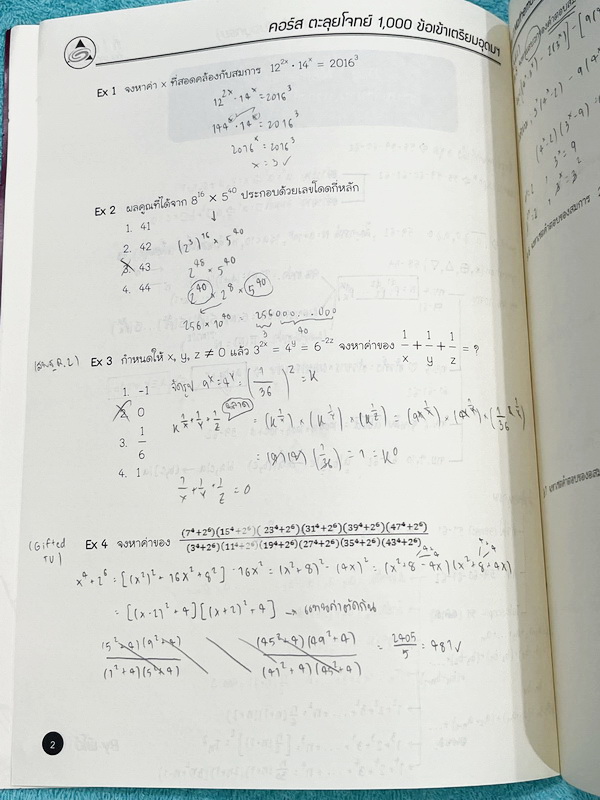 คอร์ส ตะลุยโจทย์ 1,000 ข้อเข้าเตรียมอุดมฯ
Ex 1 จงหาค่า x ที่สอดคล้องกับสมการ 12^2x · 14^x = 2016^3
12^2x · 14^x = 2016^3
144^x · 14^x = 2016^3
2016^x = 2016^3
x = 3 ✓
Ex 2 ผลคูณที่ได้จาก 8^16 × 5^40 ประกอบด้วยเลขโดดกี่หลัก
1. 41
2. 42
(2^3)^16 × 5^40
3. 43
2^48 × 5^40
4. 44
2^40 × 2^8 × 5^40
256 × 10^40 = 256000...000
3 40
Ex 3 กำหนดให้ x, y, z ≠ 0 แล้ว 3^2x = 4^y = 6^-2z จงหาค่าของ 1/x + 1/y + 1/z = ?
1. -1
จัดรูป 9^x = 4^y = (1/36)^z = k
2. 0
ฉลาด
k^(1/x + 1/y + 1/z) = (k^1/x) × (k^1/y) × (k^1/z)
3. 1/6
= (9)(4)(1/36) = 1 = k^0
4. 1
1/x + 1/y + 1/z = 0
(Gifted TU)
Ex 4 จงหาค่าของ (7⁴+2⁶)(15⁴+2⁶)(23⁴+2⁶)(31⁴+2⁶)(39⁴+2⁶)(47⁴+2⁶) / (3⁴+2⁶)(11⁴+2⁶)(19⁴+2⁶)(27⁴+2⁶)(35⁴+2⁶)(43⁴+2⁶)
x⁴ + 2⁶ = [(x²)² + 16x² + 8²] - 16x² = (x²+8)² - (4x)² = (x²+8-4x)(x²+8+4x)
= [(x-2)² + 4][(x+2)² + 4] → แทนค่าตัดกัน
(5²+4)(9²+4) / (1²+4)(5²+4) (45²+4)(49²+4) / (41²+4)(45²+4) = 2405/5 = 481 ✓
2